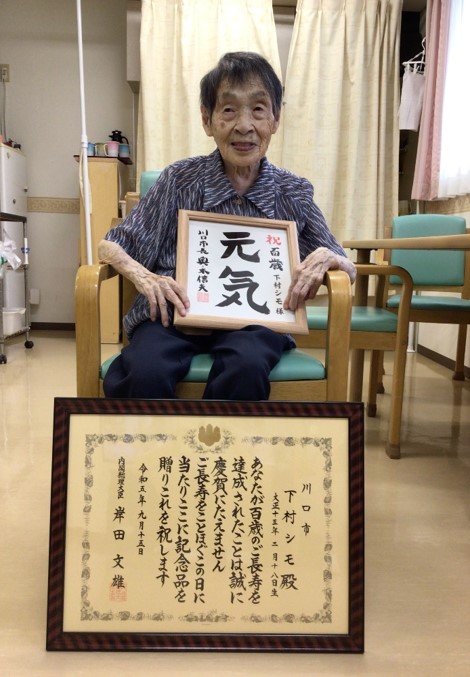 祝 百歳 下村シモ様
元気
川口市長 奥ノ木信夫
川口市
下村シモ殿
二月十八日生
あなたが百歳のご長寿を
達成されたことは誠に
慶賀にたえません
ご長寿をことほぐこの日に
当たりここに記念品を
贈りこれを祝します
令和五年九月十五日
内閣総理大臣 岸田文雄